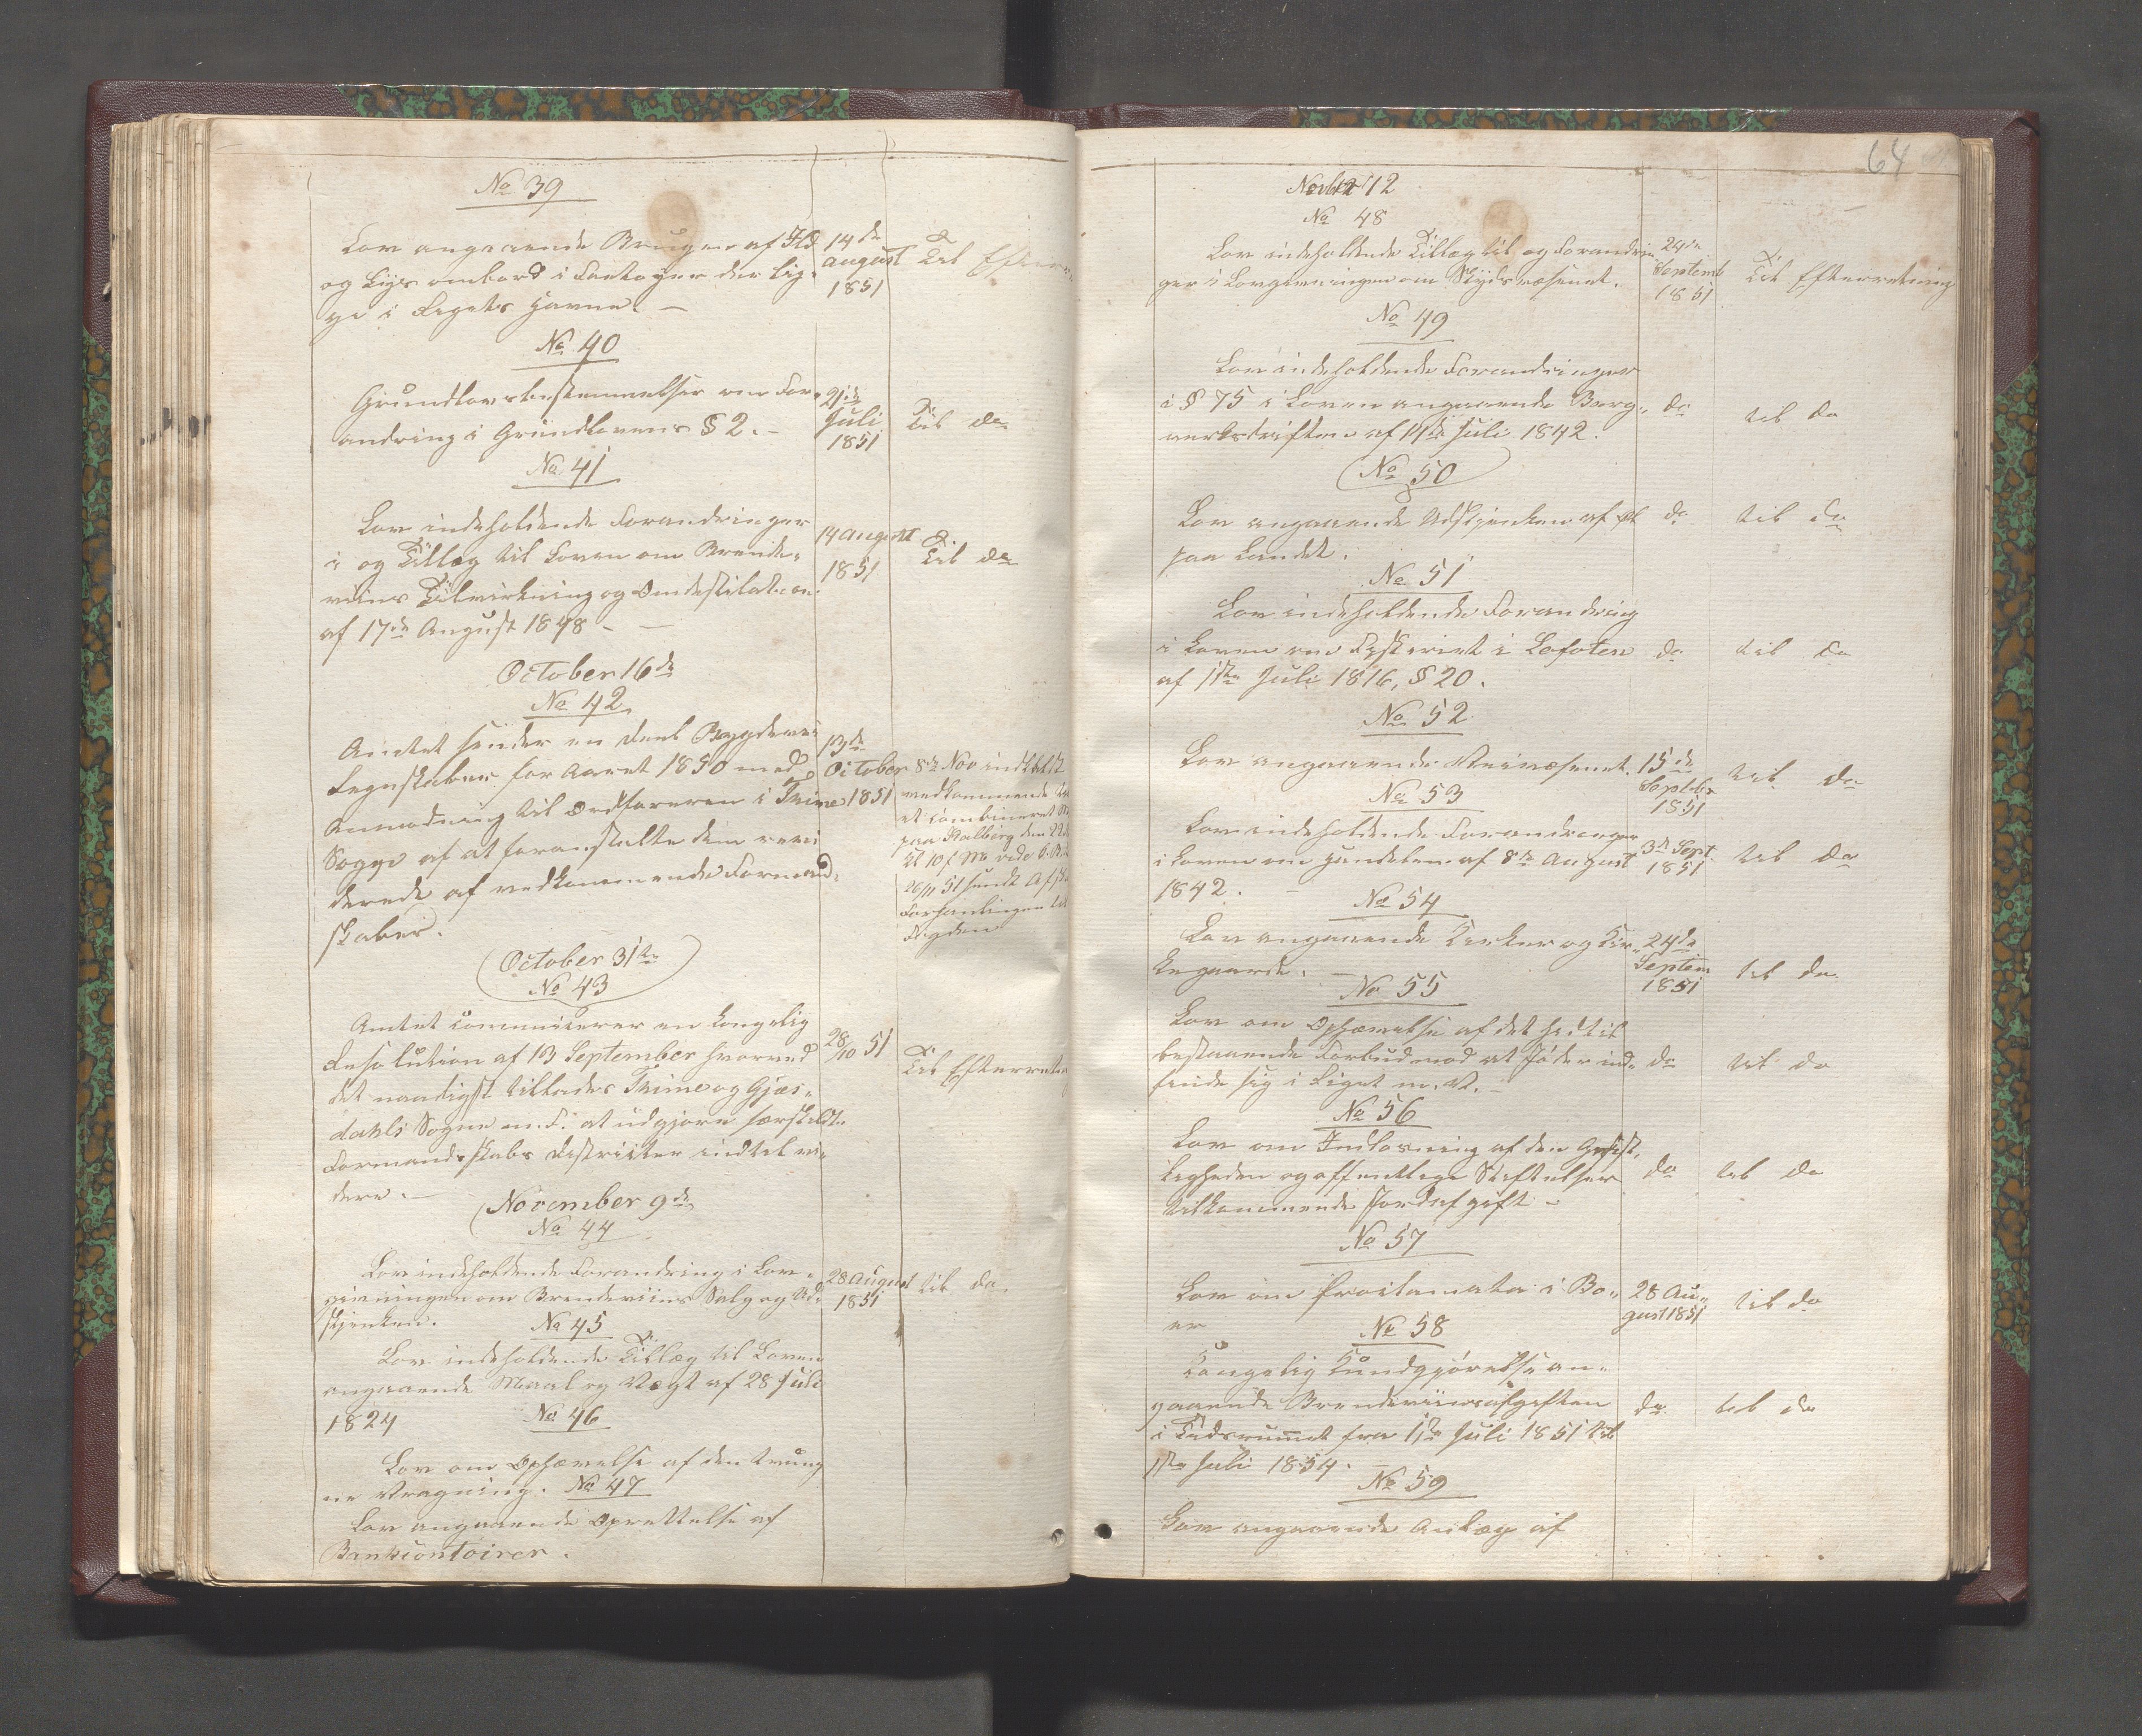 No 39
Lov angaaende Brugen af Ild
og Lys ombord i Fartøyer der lig-
ge i Rigets Havne. —
14de
August
1851
Til
No 40
Grundlovsbestemmelse om For-
andring i Grundlovens § 2. —
21de
Juli
1851
Til do
No 41
Lov indeholdende Forandringer
i og Tillæg til Loven om Brænde-
viins Tilvirkning og Omdestilation
af 17de August 1848 —
14 August
1851
Til do
October 16de
No 42
Amtet sender en Deel Bygdevei
Regnskaber for Aaret 1850 med
Anmodning til Ordføreren i Thime
Sogn af at foranstalte dem revi
derede af vedkommende Formand-
skaber.
13de
October
1851
8de Nov indkaldt
vedkommende til
et combineret
paa Aalberg den 22de
Kl 10 f. M. vide
26/11 51 sendt
Forhanlingen til
Fogden
October 31te
No 43
Amtet communicerer en kongelig
Resolution af 13 September hvorved
det naadigst tillades Thime og Gjæs-
dahls Sogne m. F. at udgjøre særskildte
Formandsskabs Districter indtil vi-
dere. —
28/10 51
Til Efterretn
November 9de
No 44
Lov indeholdende Forandring i Lov-
givningen om Brændeviins Salg og Ud-
skjenken.
28 August
1851
til do.
No 45
Lov indeholdende Tillæg til Loven
angaaende Maal og Vægt af 28 Juli
1824
No 46
Lov om Ophævelse af den tvung
ne Vragning.
No 47
Lov angaaende Oprettelse af
Bankcontoirer.
64
Novber 12
No 48
Lov indeholdende Tillæg til og Forandrin
ger i Lovgivningen om Skydsvæsenet.
24de
Septemb
1851
Til Efterretning
No 49
Lov indeholdende Forandringer
i § 75 i Loven angaaende Berg-
verksdriften af 14de Juli 1842.
do
til do
No 50
Lov angaaende Udskjenken af Øl
paa Landet.
do
til do
No 51
Lov indeholdende Forandring
i Loven om Fiskeriet i Lofoten
af 1ste Juli 1816, § 20.
do
til do
No 52
Lov angaaende Veivæsenet.
15de
Septbr
1851
til do
No 53
Lov indeholdende Forandringer
i Loven om Handelen af 8de August
1842. —
3de Sept.
1851
til do
No 54
Lov angaaende Kirker og Kir-
kegaarde. —
24de
Septem
1851
til do
No 55
Lov om Ophævelse af det hidtil
bestaaende Forbud mod at Jøder ind-
finde sig i Riget m. V. —
do
til do
No 56
Lov om Indløsning af den Geist-
ligheden og offentlige Stiftelser
tilkommende Jordafgift —
do
til do
No 57
Lov om Proclamata i Bo-
er
28 Au-
gust 1851
til do
No 58
Kongelig Kundgjørelse an-
gaaende Brændeviinsafgiften
i Tidsrummet fra 1ste Juli 1851 til
1ste Juli 1854. —
do
til do
No 59
Lov angaaende Anlæg af